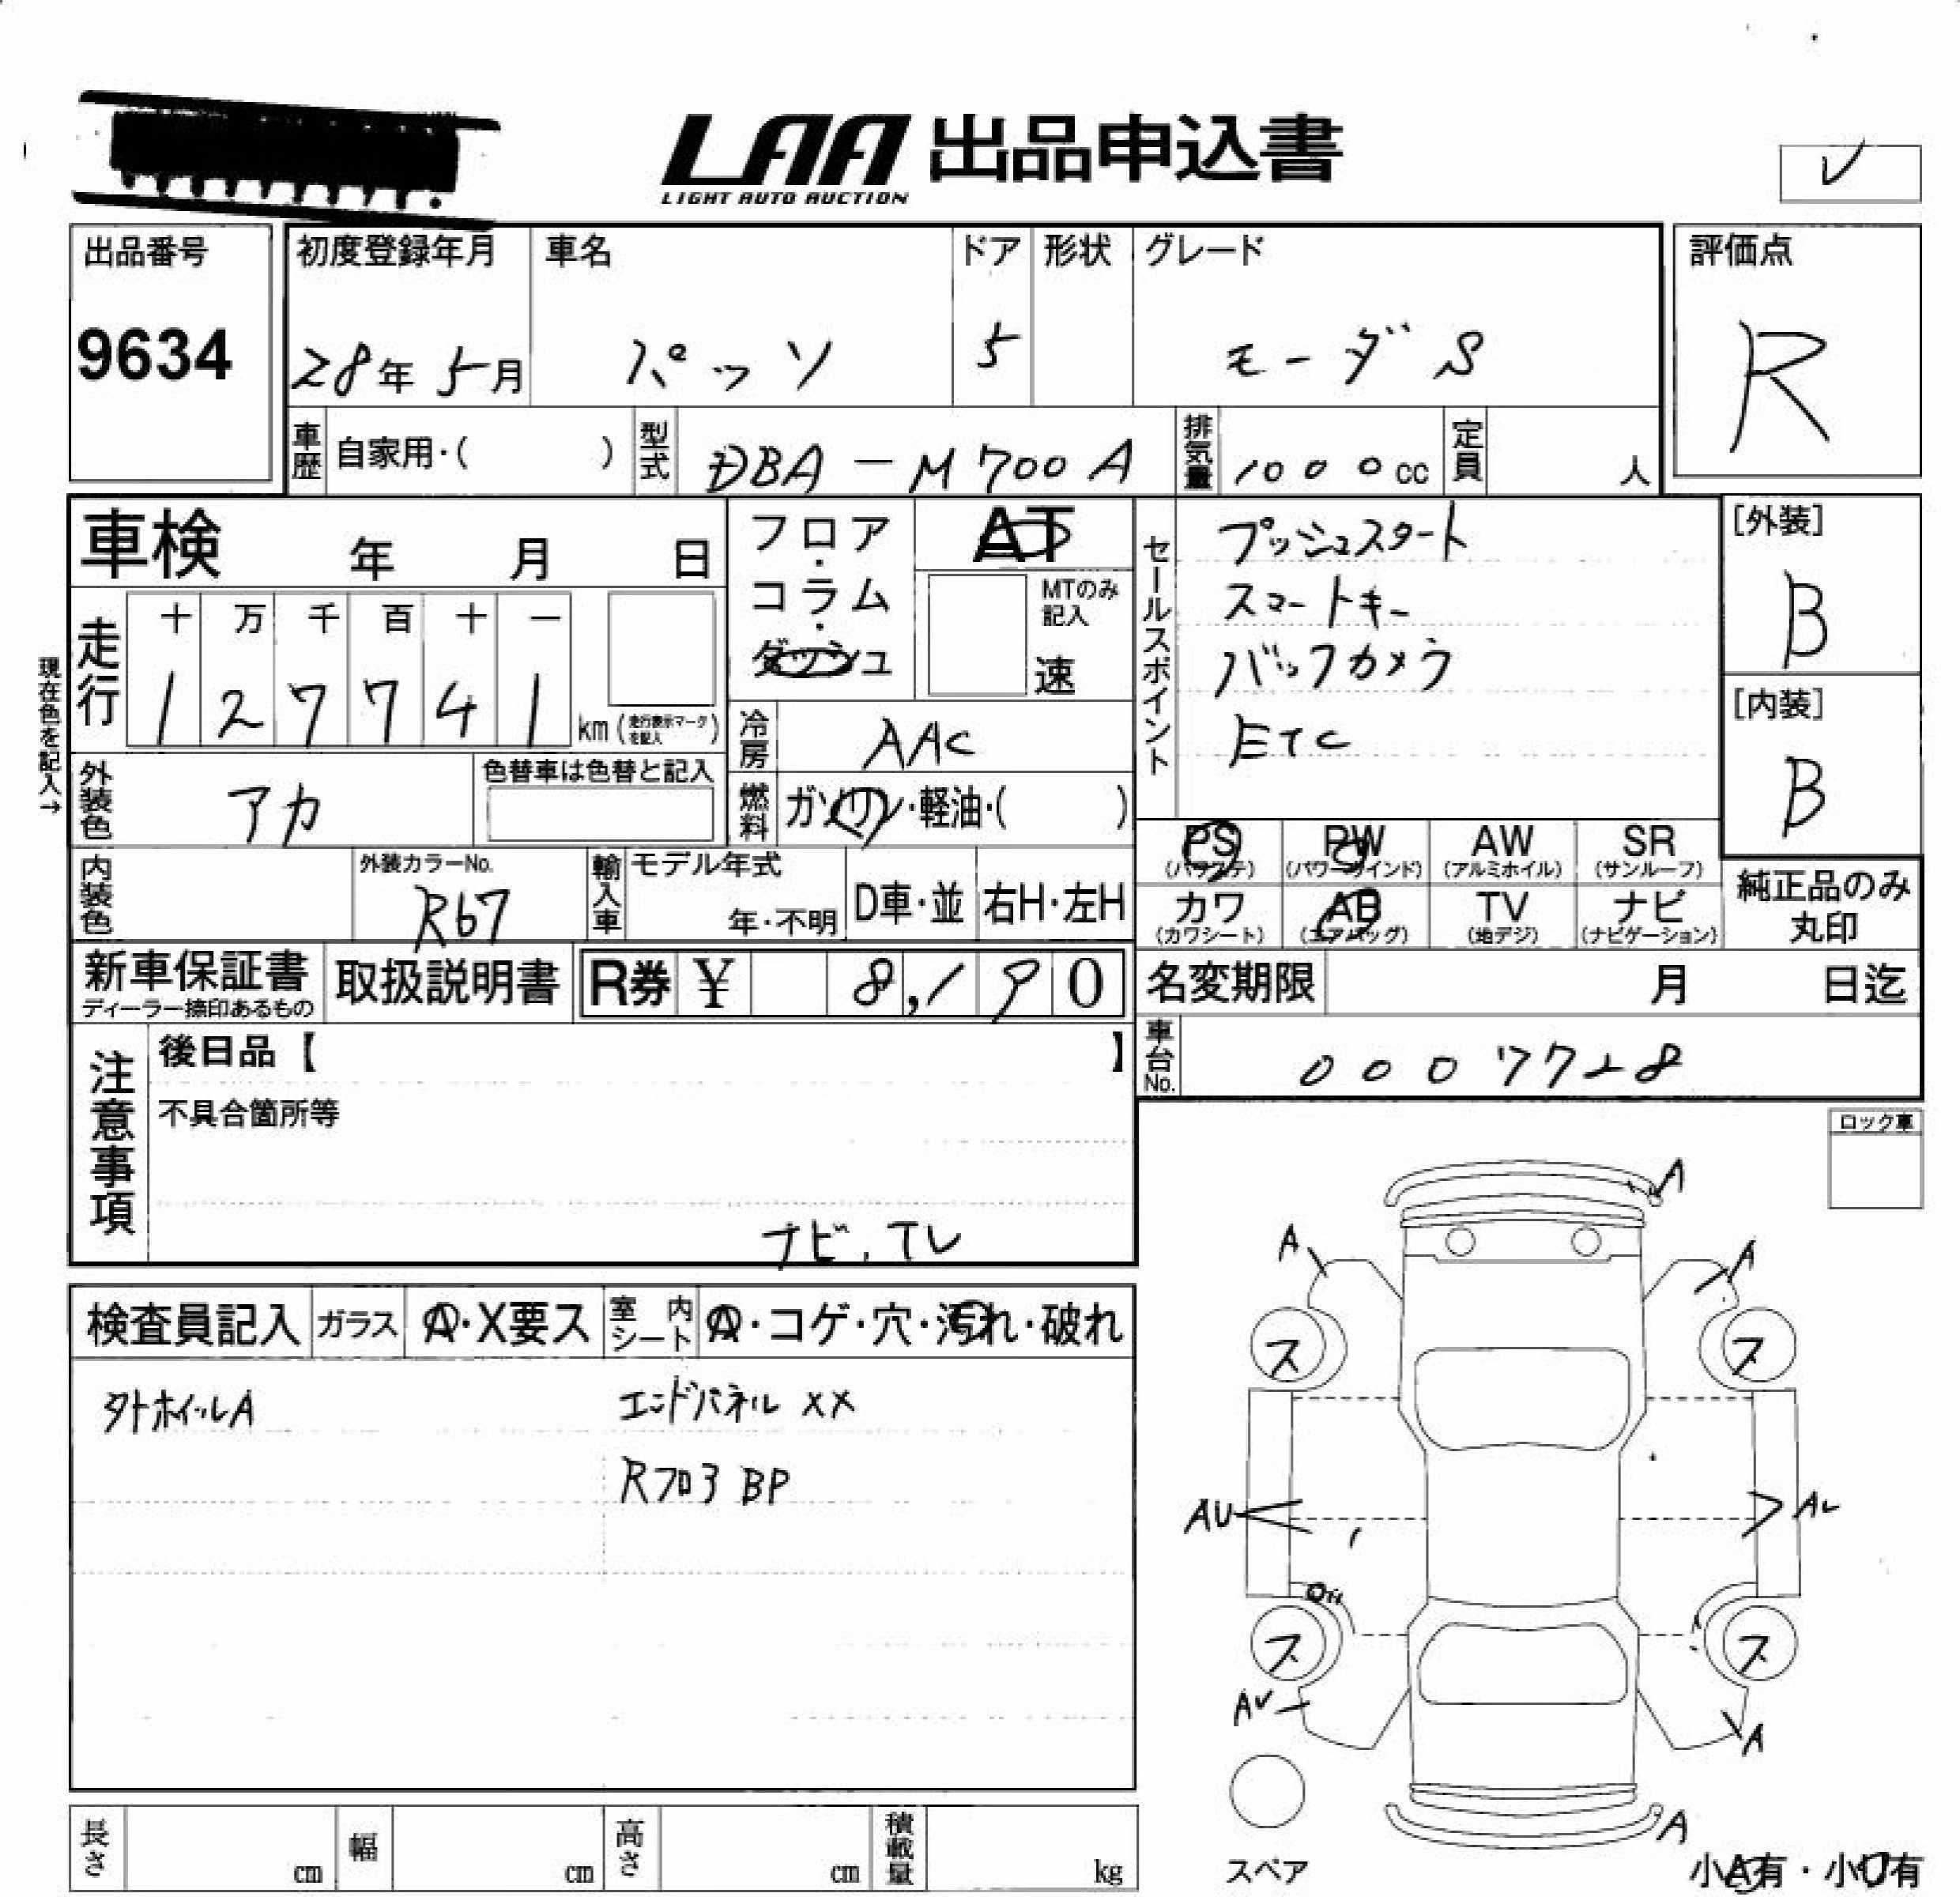 LAA 出品申込書
LIGHT AUTO AUCTION
出品番号
9634
初度登録年月
28年 5月
車名
パッソ
ドア
5
形状
グレード
モーダ S
評価点
R
車歴 自家用・( )
型式 DBA-M700A
排気量 1000cc
定員 人
車検 年 月 日
フロア・コラム・ダッシュ
AT
MTのみ記入
速
現在色を記入→
走行
十 万 千 百 十 一
1 2 7 7 4 1 km (走行表示マークを記入)
冷房 AAC
外装色 アカ
色替車は色替と記入
燃料 ガソリン・軽油・( )
セールスポイント
プッシュスタート
スマートキー
バックカメラ
ETC
[外装]
B
[内装]
B
PS (パワステ)
PW (パワーウインド)
AW (アルミホイル)
SR (サンルーフ)
カワ (カワシート)
AB (エアバッグ)
TV (地デジ)
ナビ (ナビゲーション)
純正品のみ
丸印
内装色
外装カラーNo.
R67
輸入車
モデル年式
年・不明
D車・並
右H・左H
新車保証書
ディーラー捺印あるもの
取扱説明書
R券 ¥ 8,190
名変期限 月 日迄
車台No. 0007728
注意事項
後日品【 】
不具合箇所等
ナビ、TV
検査員記入
ガラス A・X要ス
室内シート A・コゲ・穴・汚れ・破れ
タトホイールA
エンドパネル XX
Rフロア BP
ロック車
A
A
A
ス
ス
AU
ス
ス
A
A
スペア
小A有・小U有
長さ cm
幅 cm
高さ cm
積載量 kg